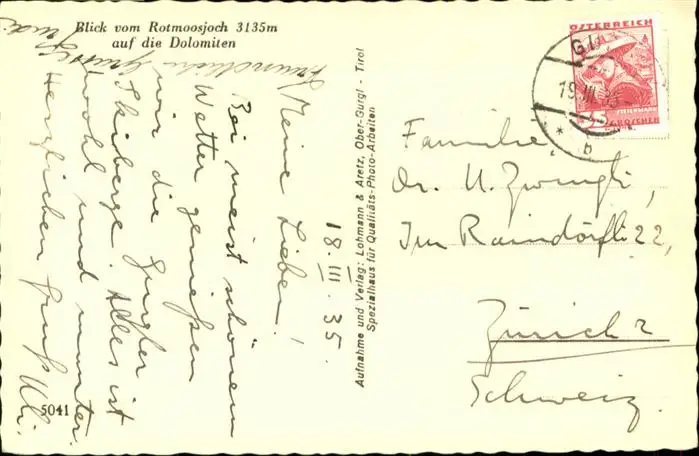 Blick vom Rotmoosjoch 3135m
auf die Dolomiten
18. III. 35.
Meine Lieben!
Bei meist schönem
Wetter genießen
wir die Gurgler
Skiberge. Alles ist
wohl und munter.
Herzlichen Gruß Uli.
Freundliche Grüsse
5041
Aufnahme und Verlag: Lohmann & Aretz, Ober-Gurgl - Tirol
Spezialhaus für Qualitäts-Photo-Arbeiten
ÖSTERREICH
STEIERMARK
GROSCHEN
19. III. 35
* b
Familie
Dr. U. Zwingli,
Im Raindörfli 22,
Zürich 2
Schweiz.